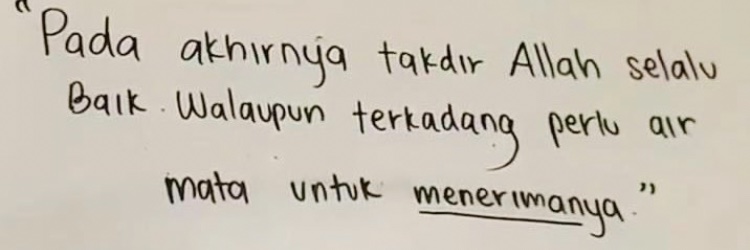 "Pada akhirnya takdir Allah selalu
Baik. Walaupun terkadang perlu air
mata untuk menerimanya."